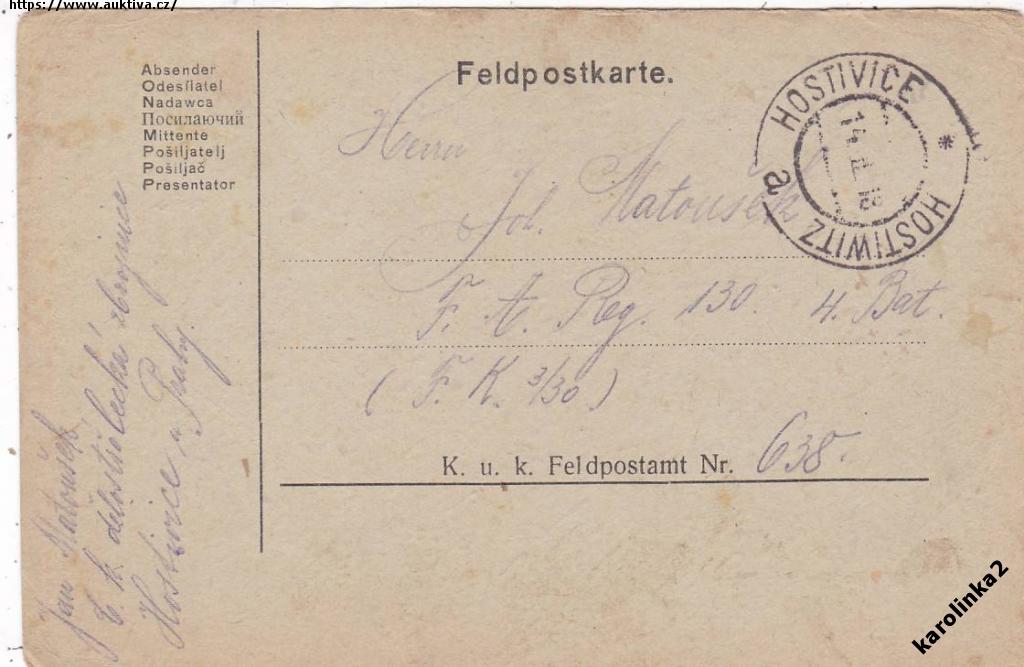 https://www.auktiva.cz/
Absender
Odesílatel
Nadawca
Посилаючий
Mittente
Pošiljatelj
Pošiljač
Presentator
Feldpostkarte.
HOSTIVICE
HOSTIWITZ
a
*
Herrn
Joh. Matoušek
F. A. Reg. 130. 4. Bat.
(F. K. 3/30.)
K. u. k. Feldpostamt Nr. 638.
Jan Matoušek
C. k. dělostřelecká zbrojnice
Hostivice u Prahy.
karolinka2